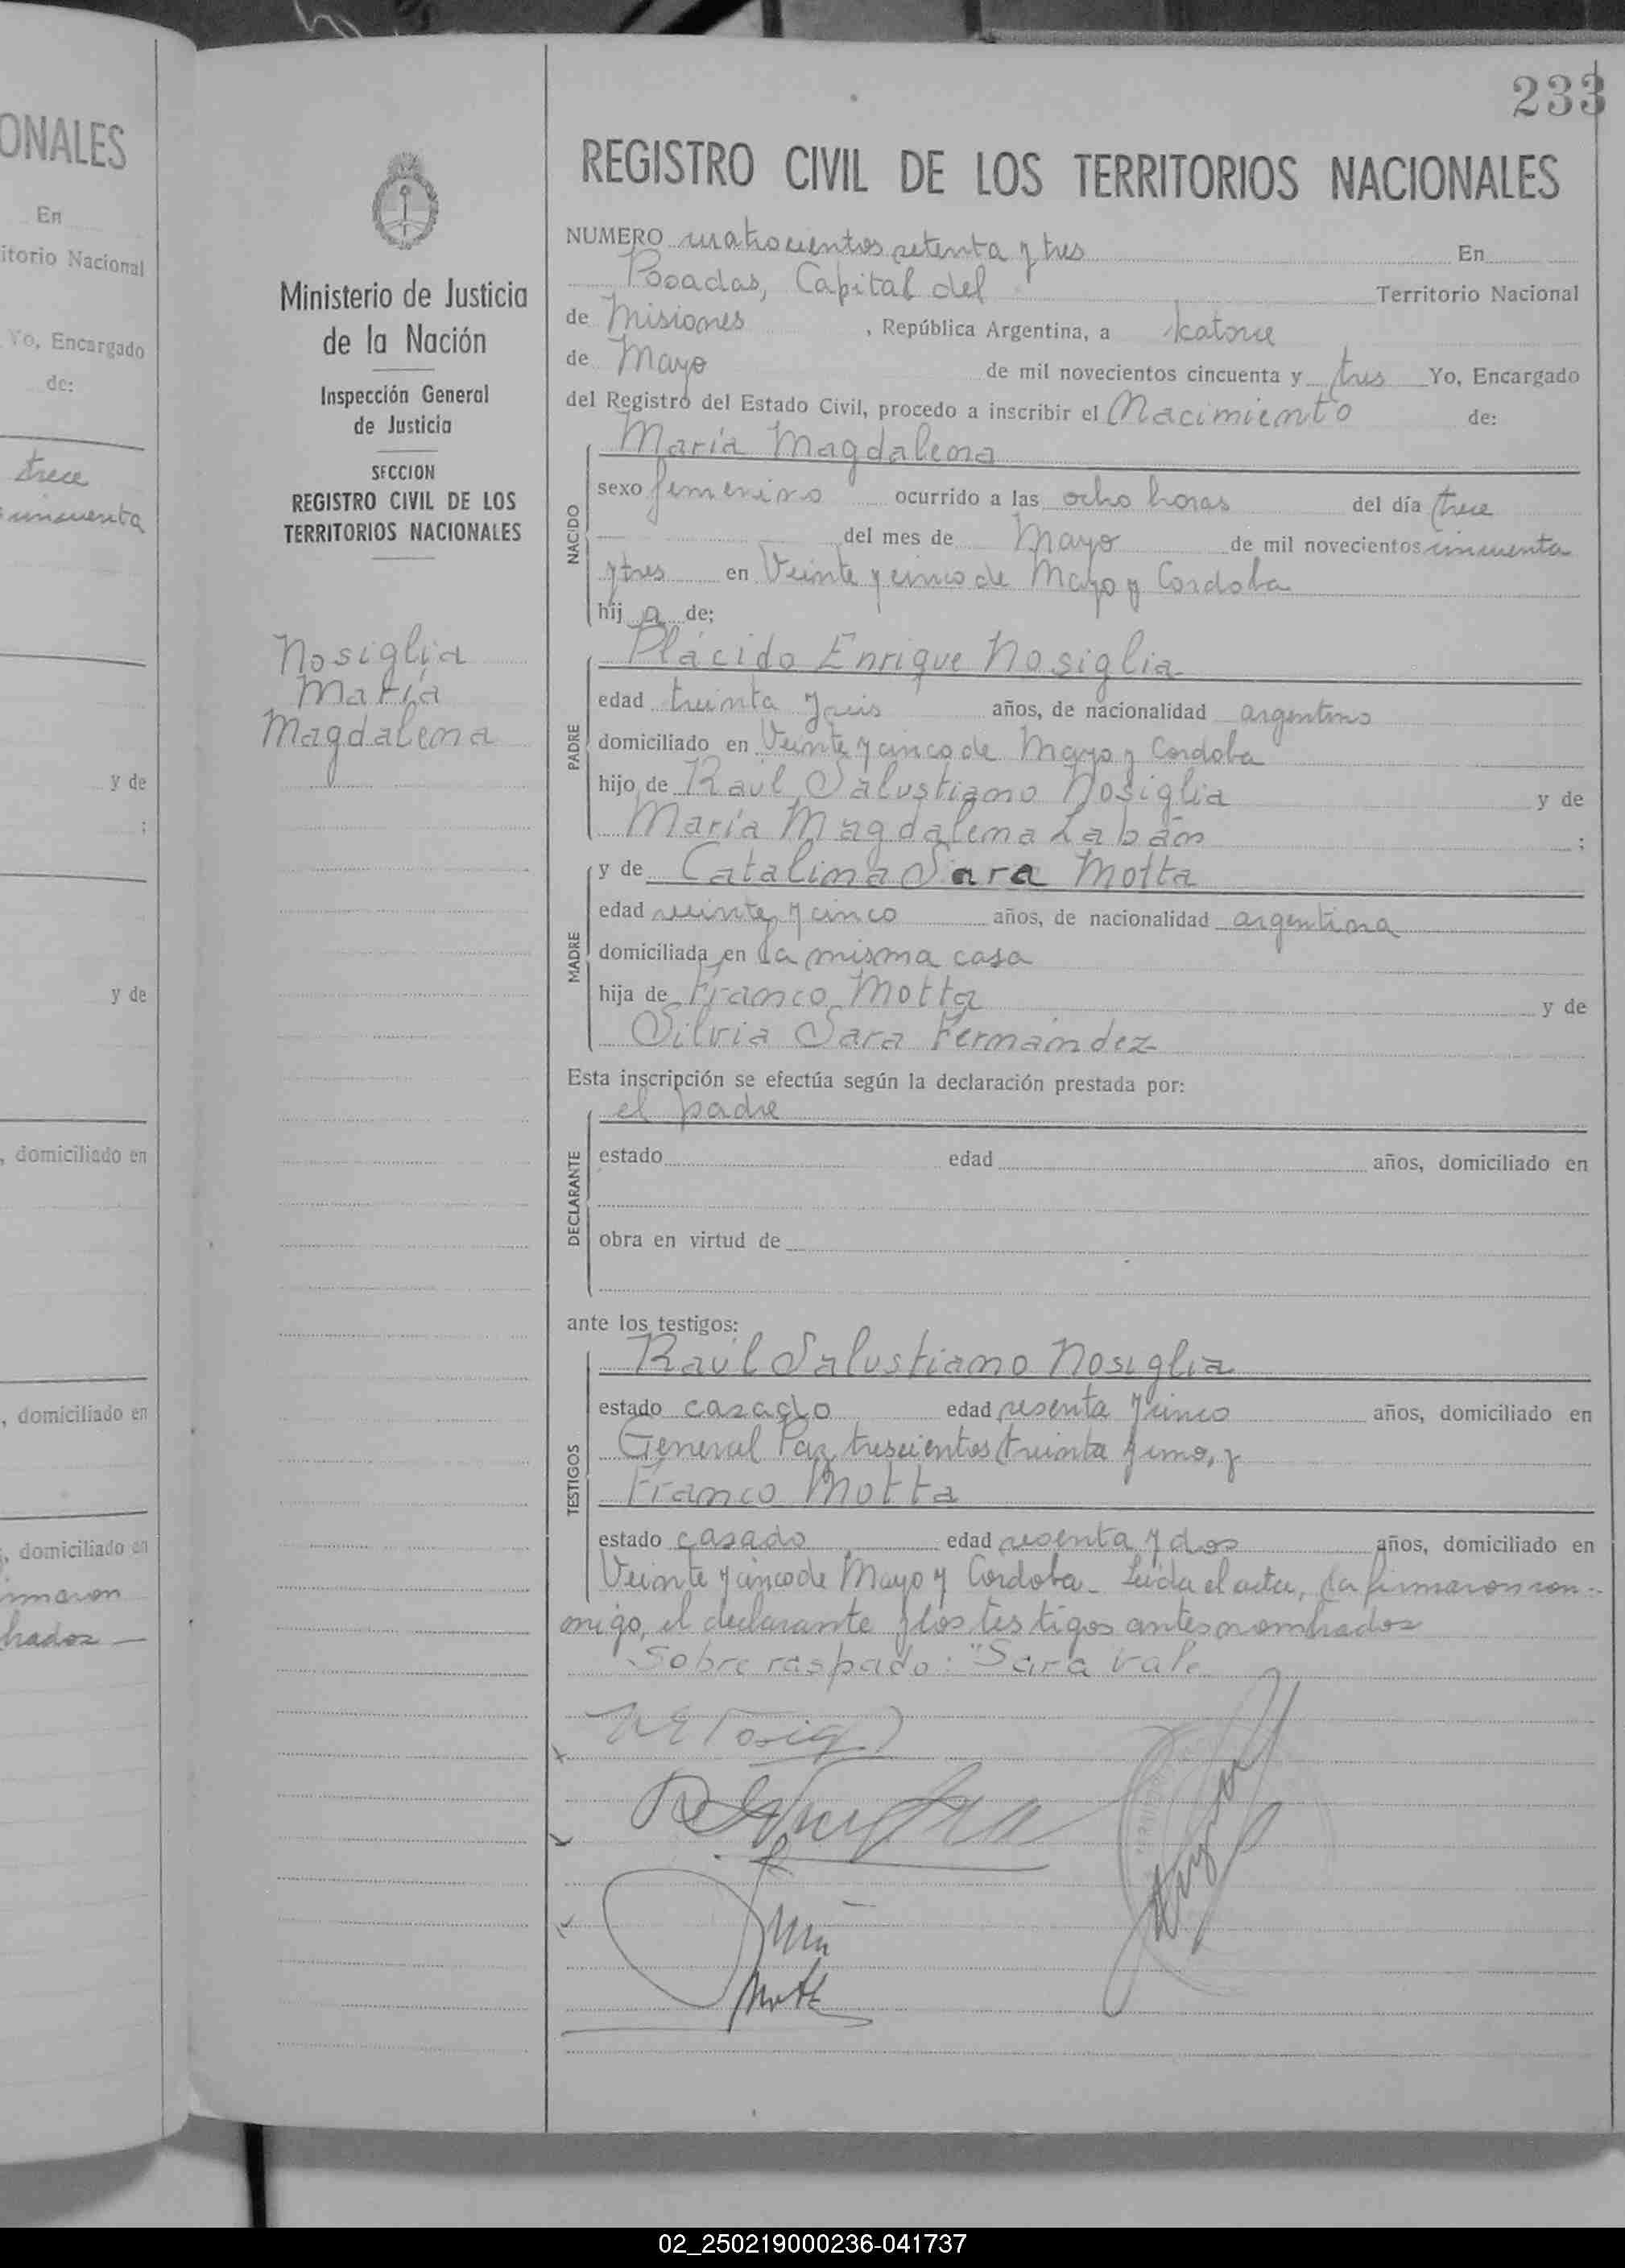 ONALES
En
itorio Nacional
Yo, Encargado
de:
trece
cincuenta
y de
;
y de
, domiciliado en
, domiciliado en
, domiciliado en
firmaron
brados —
Ministerio de Justicia
de la Nación
Inspección General
de Justicia
SECCION
REGISTRO CIVIL DE LOS
TERRITORIOS NACIONALES
Nosiglia
María
Magdalena
233
REGISTRO CIVIL DE LOS TERRITORIOS NACIONALES
NUMERO cuatrocientos setenta y tres En
Posadas, Capital del Territorio Nacional
de Misiones, República Argentina, a catorce
de Mayo de mil novecientos cincuenta y tres Yo, Encargado
del Registro del Estado Civil, procedo a inscribir el Nacimiento de:
María Magdalena
NACIDO
sexo femenino ocurrido a las ocho horas del día trece
del mes de Mayo de mil novecientos cincuenta
y tres en Veinte y cinco de Mayo y Cordoba
hij a de;
Plácido Enrique Nosiglia
PADRE
edad treinta y seis años, de nacionalidad argentino
domiciliado en Veinte y cinco de Mayo y Cordoba
hijo de Raúl Salustiano Nosiglia y de
María Magdalena Labán ;
y de Catalina Sara Motta
MADRE
edad veinte y cinco años, de nacionalidad argentina
domiciliada en la misma casa
hija de Franco Motta y de
Silvia Sara Fernández
Esta inscripción se efectúa según la declaración prestada por:
el padre
DECLARANTE
estado edad años, domiciliado en
obra en virtud de
ante los testigos:
Raúl Salustiano Nosiglia
TESTIGOS
estado casado edad sesenta y cinco años, domiciliado en
General Paz trescientos treinta y uno, y
Franco Motta
estado casado edad sesenta y dos años, domiciliado en
Veinte y cinco de Mayo y Cordoba. Leida el acta, la firmaron con-
migo, el declarante y los testigos antes nombrados
Sobre raspado: "Sara vale
Motta
02_250219000236-041737